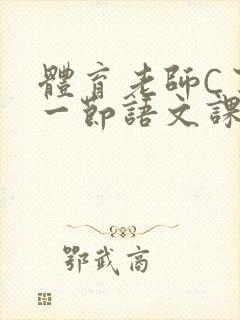 體育老師C
一節語文課
鄂武商